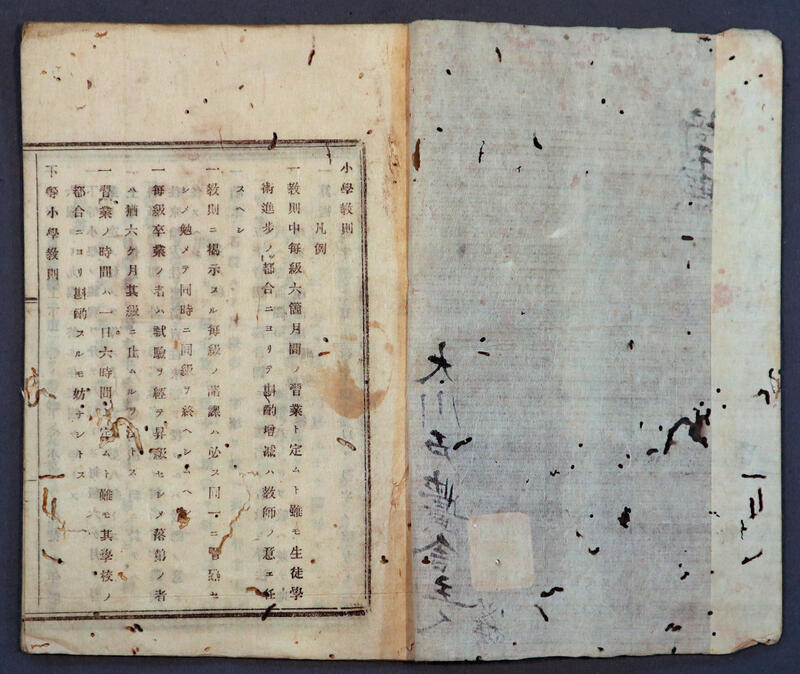 小學教則
凡例
一教則中每級六箇月間ノ習業ト定ムト雖モ生徒學
術進步ノ都合ニヨリテ斟酌增減ハ教師ノ意ニ任
スヘシ
一教則ニ揭示スル每級ノ諸課ハ必ス同一ニ習熟セ
シメ勉メテ同時ニ同級ヲ終ヘシムヘ
一每級卒業ノ者ハ試驗ヲ經テ昇級セシメ落第ノ者
ハ猶六ケ月其級ニ止ムル トス
一習業ノ時間ハ一日六時間 定ムト雖モ其學校ノ
都合ニヨリ斟酌スルモ妨ナシトス
下等小學教則